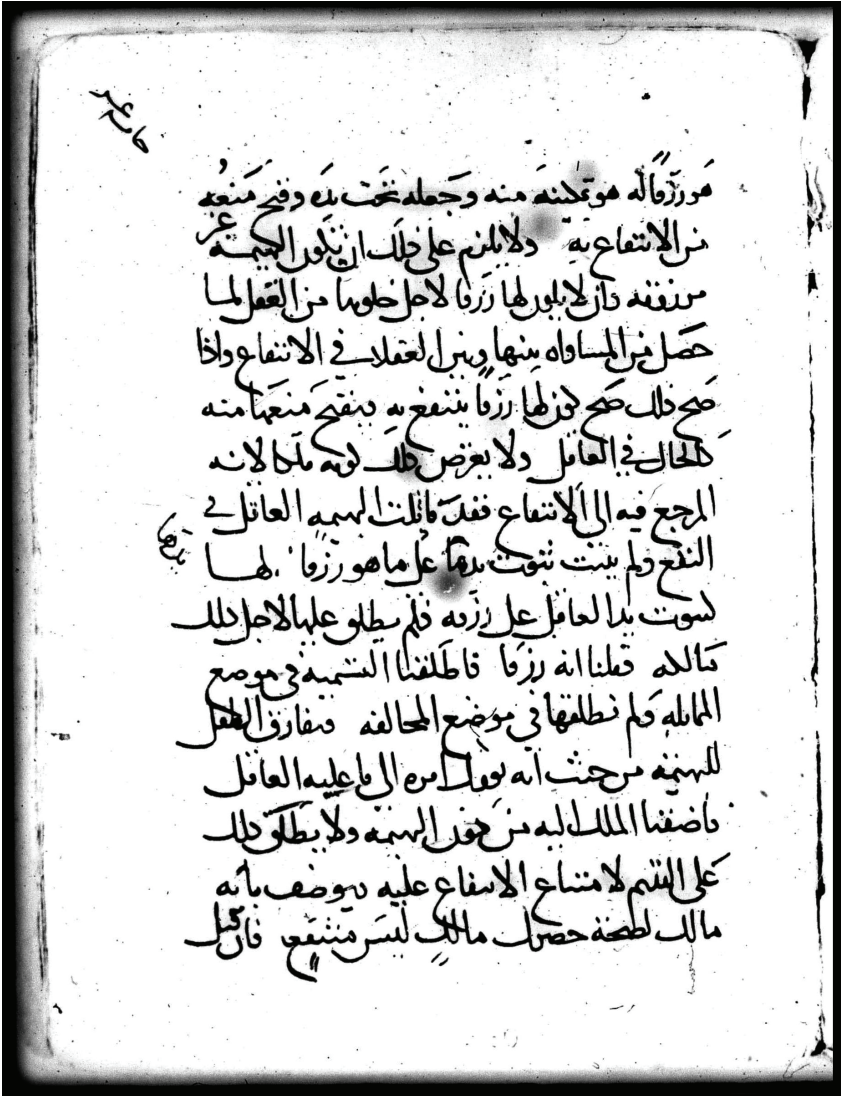 خامس عشر
هو رزقا له هو تمكينه منه وجعله تحت يده وقبح منعه
من الانتفاع به ولا يلزم على ذلك ان تكون البهيمة غير
مرزوقه وان لا يكون لها رزقا لاجل خلوها من العقل لما
حصل من المساواه بينها وبين العقلا في الانتفاع واذا
صح ذلك صح كون لها رزقا ينتفع به فيقبح منعها منه
كالحال في العاقل ولا يعرض ذلك كونه ملكا لانه
المرجع فيه الى الانتفاع فقد ماثلت البهيمه العاقل في
النفع ولم يثبت ثبوت يدها على ما هو رزقا لها
يدها
كثبوت يد العاقل على رزقه فلم يطلق عليها لاجل ذلك
مالكه قلنا انه رزقا فاطلقنا التسميه في موضع
المماثله ولم نطلقها في موضع المخالفه وفارق الطفل
للبهيمه من حيث انه يوول امره الى ما عليه العاقل
فاضفنا الملك اليه من دون البهيمه ولا يطلق ذلك
على القديم لامتناع الانتفاع عليه ويوصف بانه
مالك لصحة حصول مالك ليس منتفع فان قيل